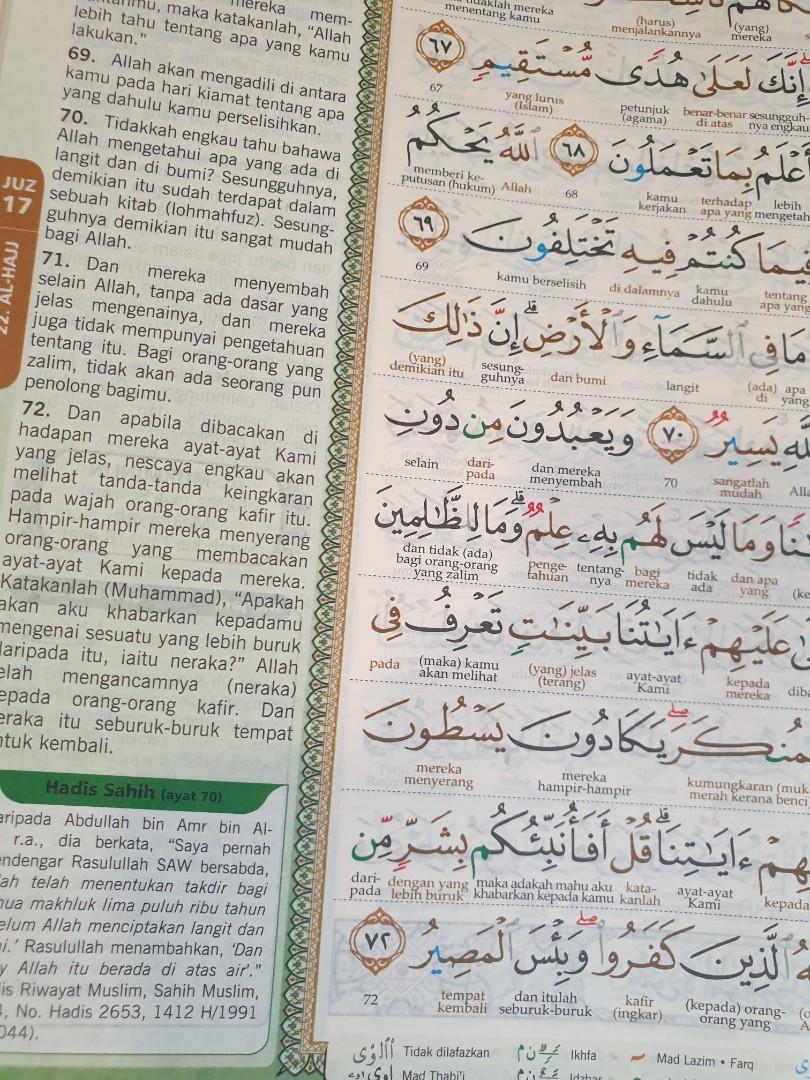 mereka mem-
maka katakanlah, “Allah
lebih tahu tentang apa yang kamu
lakukan.”
69. Allah akan mengadili di antara
kamu pada hari kiamat tentang apa
yang dahulu kamu perselisihkan.
70. Tidakkah engkau tahu bahawa
Allah mengetahui apa yang ada di
langit dan di bumi? Sesungguhnya,
demikian itu sudah terdapat dalam
sebuah kitab (lohmahfuz). Sesung-
guhnya demikian itu sangat mudah
bagi Allah.
71. Dan mereka menyembah
selain Allah, tanpa ada dasar yang
jelas mengenainya, dan mereka
juga tidak mempunyai pengetahuan
tentang itu. Bagi orang-orang yang
zalim, tidak akan ada seorang pun
penolong bagimu.
72. Dan apabila dibacakan di
hadapan mereka ayat-ayat Kami
yang jelas, nescaya engkau akan
melihat tanda-tanda keingkaran
pada wajah orang-orang kafir itu.
Hampir-hampir mereka menyerang
orang-orang yang membacakan
ayat-ayat Kami kepada mereka.
Katakanlah (Muhammad), “Apakah
akan aku khabarkan kepadamu
mengenai sesuatu yang lebih buruk
daripada itu, iaitu neraka?” Allah
mengancamnya (neraka)
orang-orang kafir. Dan
itu seburuk-buruk tempat
kembali.
JUZ
17
22. AL-HAJJ
Hadis Sahih (ayat 70)
Abdullah bin Amr bin Al-
r.a., dia berkata, “Saya pernah
Rasulullah SAW bersabda,
telah menentukan takdir bagi
makhluk lima puluh ribu tahun
Allah menciptakan langit dan
Rasulullah menambahkan, ‘Dan
Allah itu berada di atas air’.”
Riwayat Muslim, Sahih Muslim,
No. Hadis 2653, 1412 H/1991
mereka
menentang kamu
(harus)
menjalankannya
(yang)
mereka
إِنَّكَ لَعَلَىٰ هُدًى مُّسْتَقِيمٍ ٦٧
benar-benar di atas
petunjuk (agama)
yang lurus (Islam)
67
أَعْلَمُ بِمَا تَعْمَلُونَ ٦٨ ٱللَّهُ يَحْكُمُ
lebih
terhadap apa yang
kamu kerjakan
68
Allah
memberi ke-
putusan (hukum)
فِيمَا كُنتُمْ فِيهِ تَخْتَلِفُونَ ٦٩
tentang apa yang
kamu dahulu
di dalamnya
kamu berselisih
69
مَا فِى ٱلسَّمَآءِ وَٱلْأَرْضِ ۗ إِنَّ ذَٰلِكَ
apa yang
(ada) di
langit
dan bumi
sesung-
guhnya
(yang)
demikian itu
يَسِيرٌ ٧٠ وَيَعْبُدُونَ مِن دُونِ
sangatlah mudah
70
dan mereka menyembah
dari-
pada
selain
وَمَا لَيْسَ لَهُم بِهِۦ عِلْمٌ ۗ وَمَا لِلظَّٰلِمِينَ
dan apa yang
tidak ada
bagi mereka
tentang-
nya
penge-
tahuan
dan tidak (ada)
bagi orang-orang
yang zalim
عَلَيْهِمْ ءَايَٰتُنَا بَيِّنَٰتٍ تَعْرِفُ فِى
kepada mereka
ayat-ayat Kami
(yang) jelas (terang)
(maka) kamu akan melihat
pada
ٱلْمُنكَرَ ۖ يَكَادُونَ يَسْطُونَ
merah kerana
mereka hampir-hampir
mereka menyerang
ءَايَٰتِنَا ۗ قُلْ أَفَأُنَبِّئُكُم بِشَرٍّ مِّن
kepada
ayat-ayat Kami
kata-
kanlah
maka adakah mahu aku
khabarkan kepada kamu
dengan yang
lebih buruk
dari-
pada
ٱلَّذِينَ كَفَرُوا۟ ۖ وَبِئْسَ ٱلْمَصِيرُ ٧٢
(kepada) orang-
orang yang
kafir (ingkar)
dan itulah
seburuk-buruk
tempat kembali
72
Tidak dilafazkan
Ikhfa
Mad Lazim • Farq
Mad Thabi'i
Idzhar